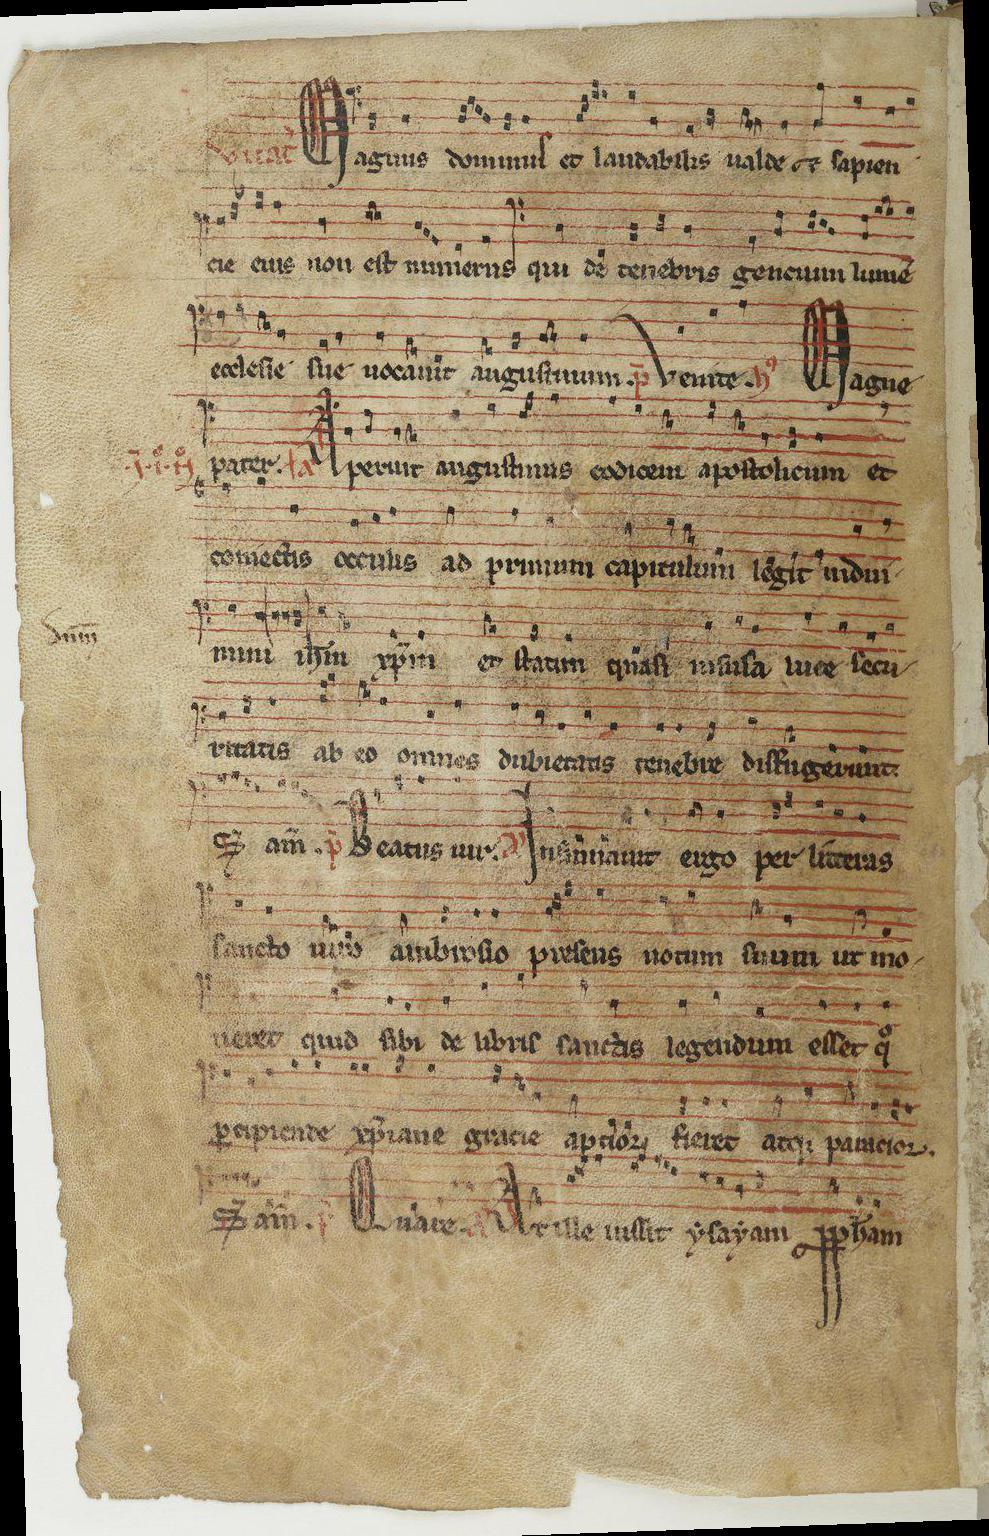 Inuitat Magnus dominus et laudabilis ualde et sapien
cie eius non est numerus qui de tenebris gencium lumē
ecclesie sue uocauit augustinum. p̄ Venite. hꝰ Magne
pater. a Aperuit augustinus codicem apostolicum et
coniectis occulis ad primum capitulum legit indui
Dum̄
mini ihm̄ xp̄m et statim quasi infusa luce secu
ritatis ab eo omnes dubietatis tenebre diffugerunt.
S am̄. p̄ Beatus uir. Insinuauit ergo per litteras
sancto uiro ambrosio presens uotum suum ut mo
neret quid sibi de libris sanctis legendum esset q̊
ꝑcipiende xp̄iane gracie apcior fieret atqꝫ paracior.
S am̄. p̄ Quare. a At ille iussit ysayam ꝓph̄am